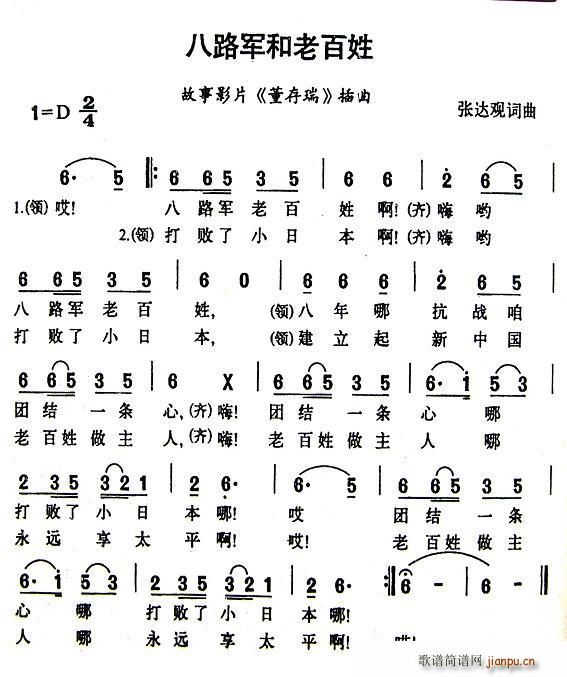 八路军和老百姓
故事影片《董存瑞》插曲
1=D 2/4 张达观词曲
6· 5 ‖: 6 6 5 3 5 | 6 6 | 2 6 5 |
1.(领)哎! 八路军老百姓啊!(齐)嗨哟
2.(领)打败了小日本啊!(齐)嗨哟
6 6 5 3 5 | 6 0 | 6 6 6 | 2 6 5 |
八路军老百姓, (领)八年哪 抗战咱
打败了小日本, (领)建立起 新中国
6 6 5 3 5 | 6 X | 6 6 5 3 5 | 6· 1 5 3 |
团结一条心,(齐)嗨! 团结一条心哪
老百姓做主人,(齐)嗨! 老百姓做主人哪
2 3 5 3 2 1 | 2 6· | 6· 5 | 6 6 6 5 3 5 |
打败了小日本哪! 哎 团结一条
永远享太平啊! 哎! 老百姓做主
6· 1 5 3 | 2 3 5 3 2 1 | 2 6· :‖ 6 - | 6 - ‖
心哪 打败了小日本哪!
人哪 永远享太平啊! 哎!
歌谱简谱网 jianpu.cn